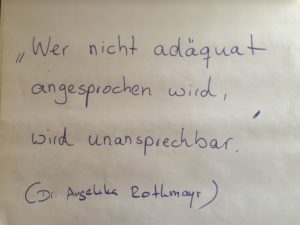 „Wer nicht adäquat
angesprochen wird,
wird unansprechbar.'
(Dr. Angelika Rothmayr)